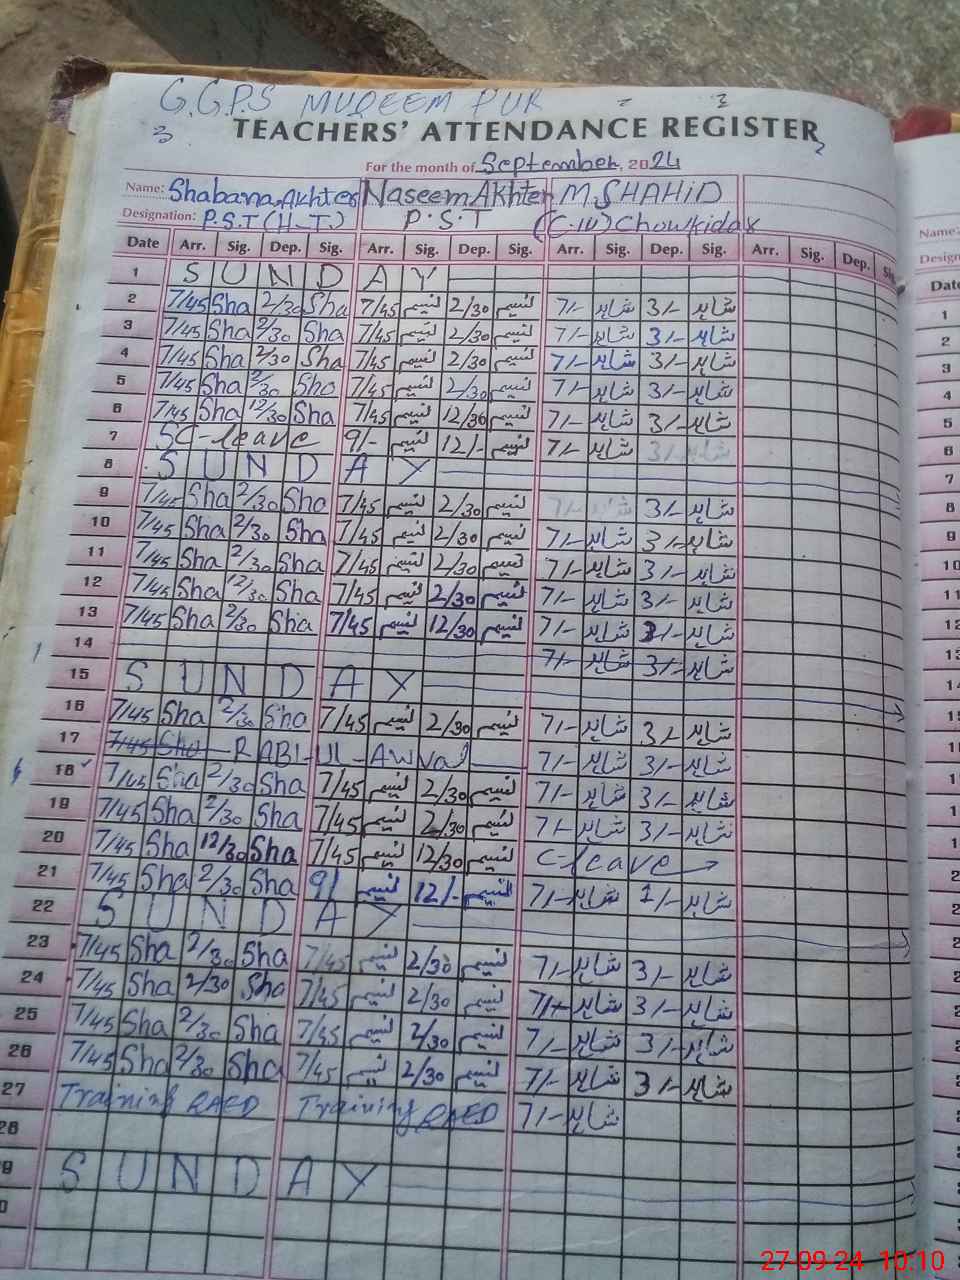 G.G.P.S MUQEEM PUR
TEACHERS' ATTENDANCE REGISTER
For the month of September, 2024
Name: Shabana Akhter Naseem Akhter M. SHAHID
Designation: P.S.T (H-T) P.S.T (C-IV) Chowkidar
Date Arr. Sig. Dep. Sig. Arr. Sig. Dep. Sig. Arr. Sig. Dep. Sig. Arr. Sig. Dep. Sig.
1 SUNDAY
2 7/45 Sha 2/30 Sha 7/45 نسیم 2/30 نسیم 7/- شاہد 3/- شاہد
3 7/45 Sha 2/30 Sha 7/45 نسیم 2/30 نسیم 7/- شاہد 3/- شاہد
4 7/45 Sha 2/30 Sha 7/45 نسیم 2/30 نسیم 7/- شاہد 3/- شاہد
5 7/45 Sha 2/30 Sha 7/45 نسیم 2/30 نسیم 7/- شاہد 3/- شاہد
6 7/45 Sha 12/30 Sha 7/45 نسیم 12/30 نسیم 7/- شاہد 3/- شاہد
7 leave 9/- نسیم 12/- نسیم 7/- شاہد 3/- شاہد
8 SUNDAY
9 7/45 Sha 2/30 Sha 7/45 نسیم 2/30 نسیم 7/- شاہد 3/- شاہد
10 7/45 Sha 2/30 Sha 7/45 نسیم 2/30 نسیم 7/- شاہد 3/- شاہد
11 7/45 Sha 2/30 Sha 7/45 نسیم 2/30 نسیم 7/- شاہد 3/- شاہد
12 7/45 Sha 12/30 Sha 7/45 نسیم 2/30 نسیم 7/- شاہد 3/- شاہد
13 7/45 Sha 2/30 Sha 7/45 نسیم 12/30 نسیم 7/- شاہد 3/- شاہد
14 7/- شاہد 3/- شاہد
15 SUNDAY
16 7/45 Sha 2/30 Sha 7/45 نسیم 2/30 نسیم 7/- شاہد 3/- شاہد
17 7/45 Sha RABI-UL-AWVal 7/- شاہد 3/- شاہد
18 7/45 Sha 2/30 Sha 7/45 نسیم 2/30 نسیم 7/- شاہد 3/- شاہد
19 7/45 Sha 2/30 Sha 7/45 نسیم 2/30 نسیم 7/- شاہد 3/- شاہد
20 7/45 Sha 12/30 Sha 7/45 نسیم 12/30 نسیم C-leave
21 7/45 Sha 2/30 Sha 9/ نسیم 12/- نسیم 7/- شاہد 1/- شاہد
22 SUNDAY
23 7/45 Sha 2/30 Sha 7/45 نسیم 2/30 نسیم 7/- شاہد 3/- شاہد
24 7/45 Sha 2/30 Sha 7/45 نسیم 2/30 نسیم 7/- شاہد 3/- شاہد
25 7/45 Sha 2/30 Sha 7/45 نسیم 2/30 نسیم 7/- شاہد 3/- شاہد
26 7/45 Sha 2/30 Sha 7/45 نسیم 2/30 نسیم 7/- شاہد 3/- شاہد
27 Training RAED Training RAED 7/- شاہد
28
9 SUNDAY
0
Name:
Design
Date
1
2
3
4
5
6
7
8
9
10
11
12
13
14
15
27-09-24 10:10